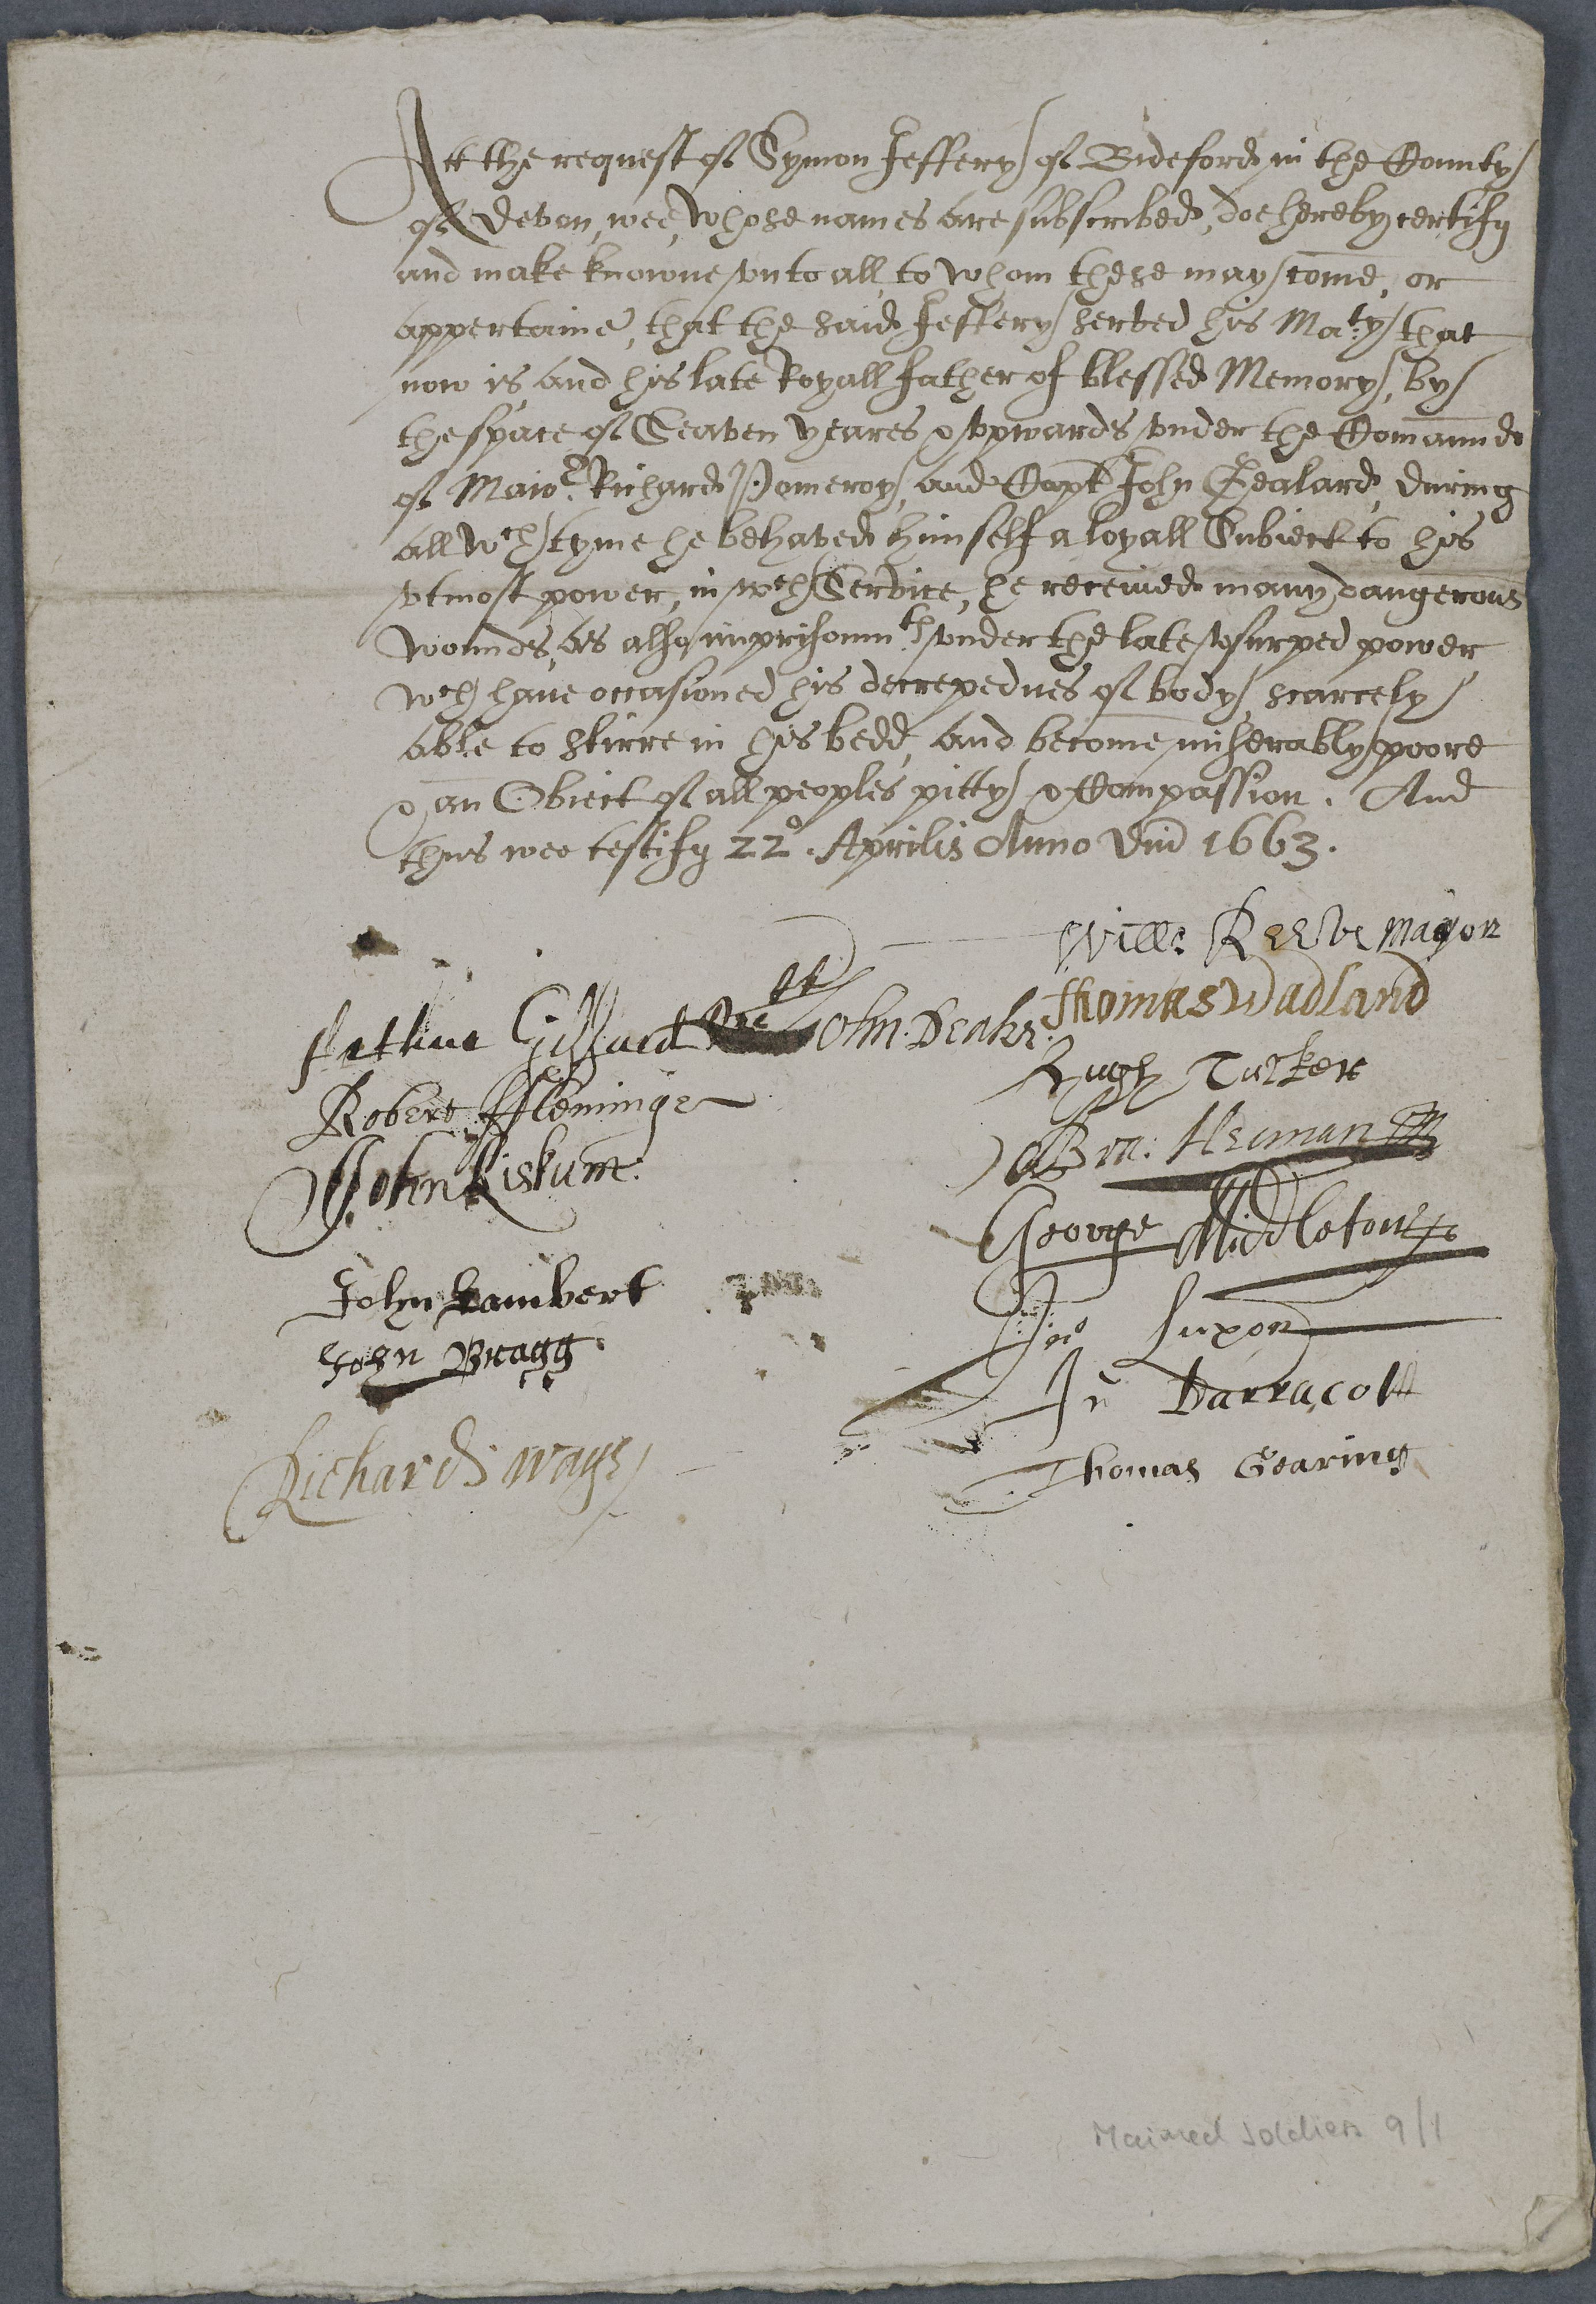 Att the request of Symon Jeffery of Bideford in the County
of Devon, wee, whose names are subscribed, doe hereby certify
and make knowne vnto all to whom these may come, or
appertaine, that the said Jeffery served his Maty that
now is and his late Royall father of blessed Memory, by
the space of Seaven yeares & vpwards vnder the Comaund
of Maior Richard Pomeroy, and Capt John Gealard, during
all wch tyme he behaved himself a loyall Subiect to his
vtmost power, in wch Service, he received many dangerous
wounds, as also imprisonmth vnder the late vsurped power
wch have occasioned his decrepednes of body, scarcely
able to stirre in his bedd, and become miserably poore
& an Obiect of all peoples pitty & Compassion. And
thus wee testify 22o. Aprilis Anno Dni 1663.
Will: Reeve Mayor
Thomas Wadland
Arthur Giffard Rect
John
Hugh Tucker
Robert Fleminge
Abra: Heiman
John Kiskum
George Middleton
John Lambert
Jno Luxon
John Bragg
Jn Barracott
Richard Wage
Thomas Gearing
Maimed Soldiers 9/1